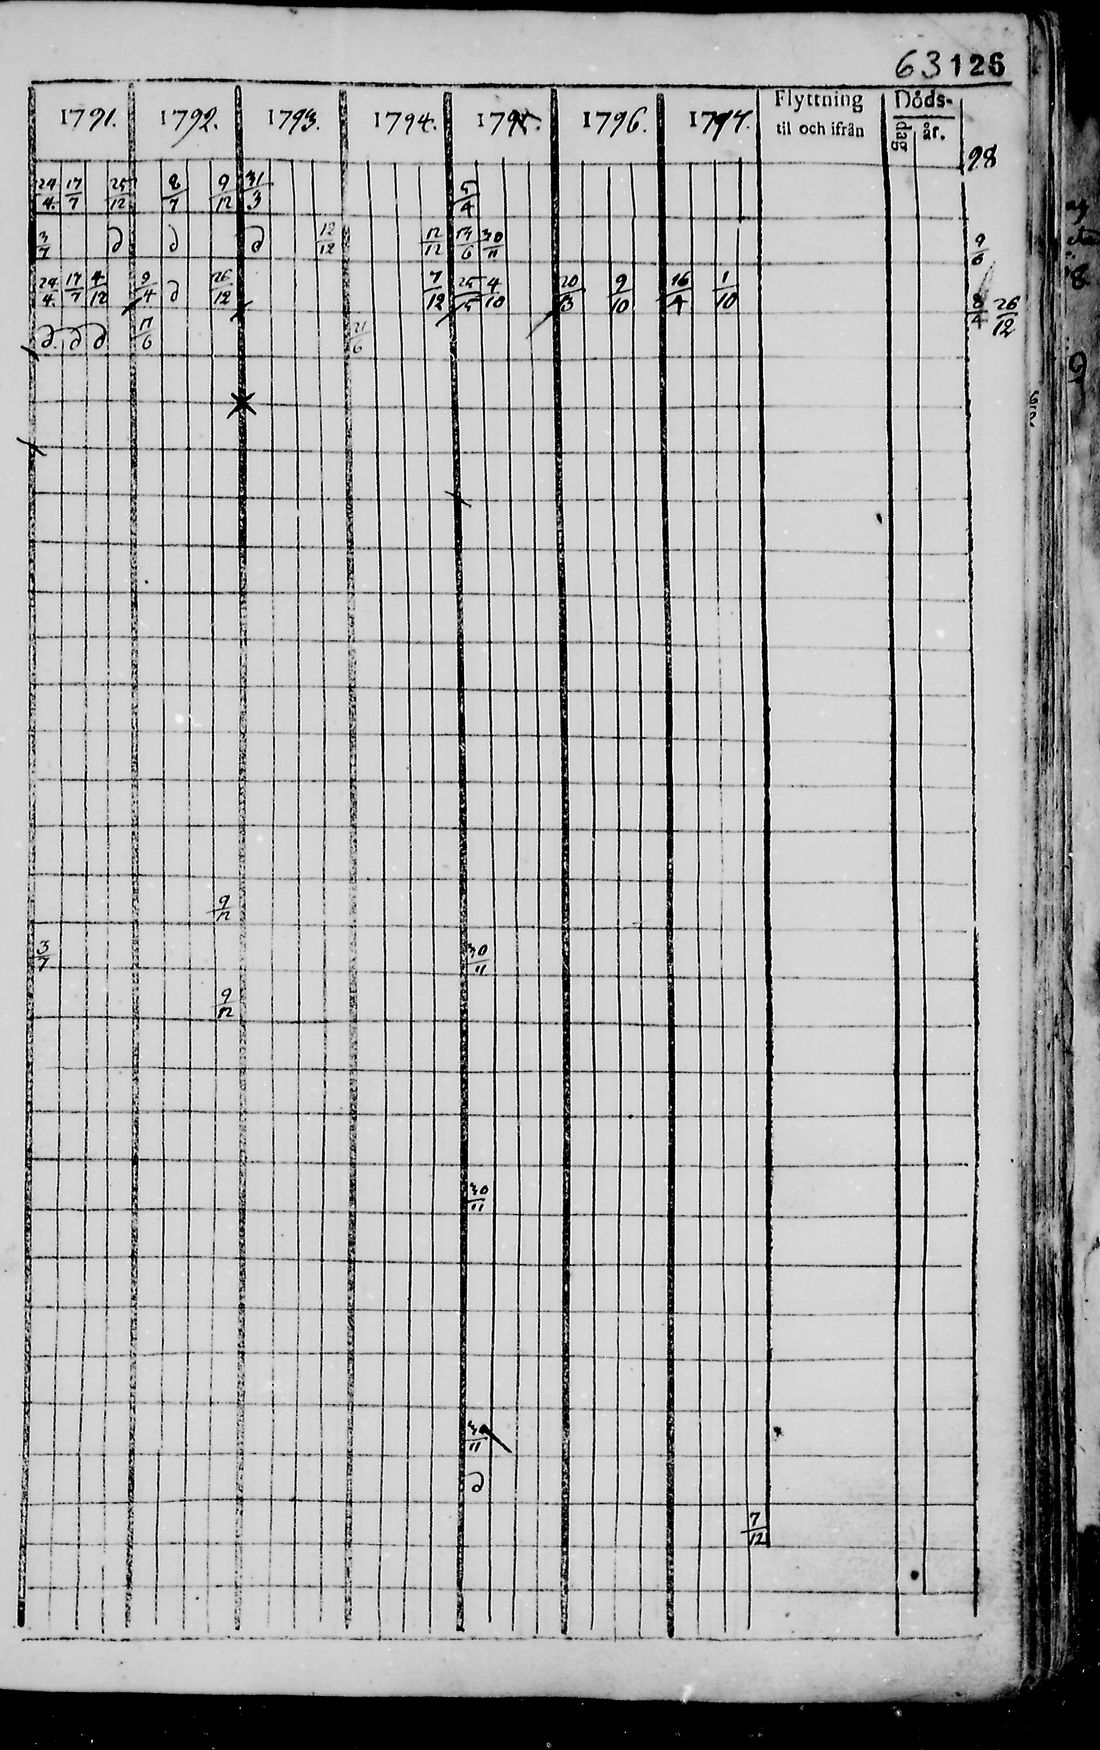 63 126
1791. 1792. 1793. 1794. 1795. 1796. 1797. Flyttning til och ifrån Döds- dag år. 98
24/4 17/7 25/12 8/7 9/12 31/3 5/4
3/7 д д д 12/12 12/12 14/6 30/11 9/6
24/4 17/7 4/12 9/4 д 26/12 7/12 25/5 4/10 20/3 9/10 16/4 1/10 8/4 26/12
д д д 17/6 21/6
9/12
3/7 30/11
9/12
30/11
30/11
д
7/12